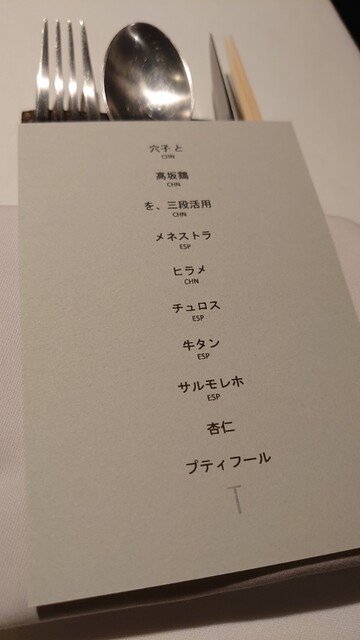 穴子と
CHN
高坂鶏
CHN
を、三段活用
CHN
メネストラ
ESP
ヒラメ
CHN
チュロス
ESP
牛タン
ESP
サルモレホ
ESP
杏仁
プティフール
T